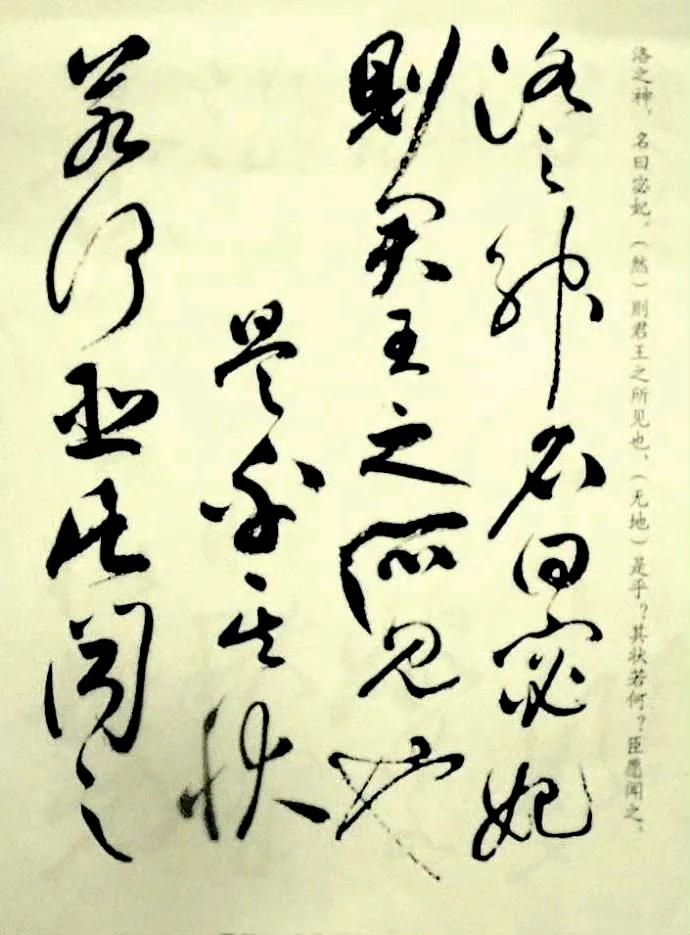 洛之神，名曰宓妃，（然）則君王之所见也，（无地）是乎？其状若何？臣愿闻之，
洛之神名曰宓妃
則君王之所見也
是乎其状
若何臣愿闻之